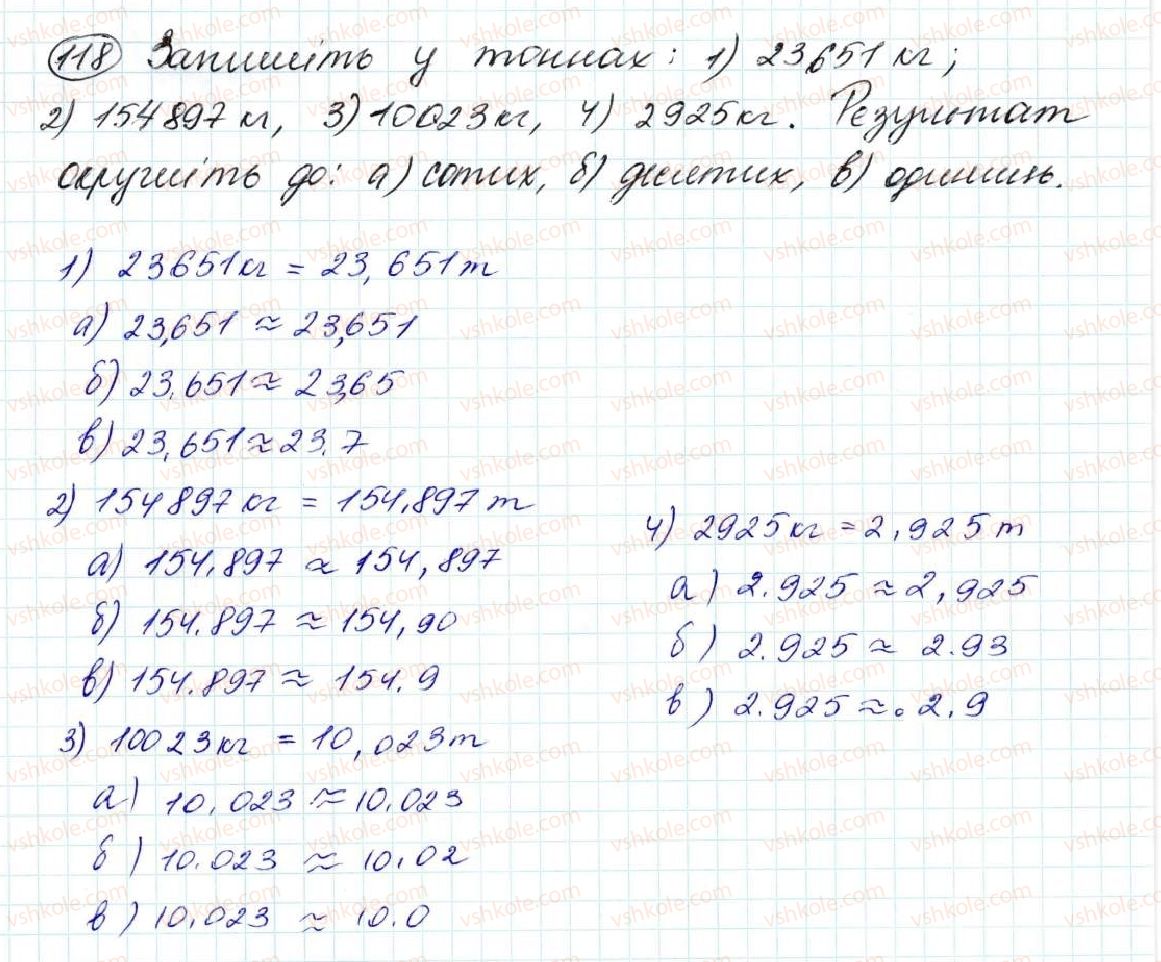 118 Запишіть у тоннах: 1) 23651 кг;
2) 154897 кг, 3) 10023 кг, 4) 2925 кг. Результат
округліть до: а) сотих, б) десятих, в) одиниць.
1) 23651 кг = 23,651 т
а) 23,651 ≈ 23,651
б) 23,651 ≈ 23,65
в) 23,651 ≈ 23,7
2) 154897 кг = 154,897 т
а) 154,897 ≈ 154,897
б) 154.897 ≈ 154,90
в) 154.897 ≈ 154.9
3) 10023 кг = 10,023 т
а) 10,023 ≈ 10.023
б) 10.023 ≈ 10,02
в) 10,023 ≈ 10.0
4) 2925 кг = 2,925 т
а) 2.925 ≈ 2,925
б) 2.925 ≈ 2.93
в) 2.925 ≈ 2,9
vshkole.com